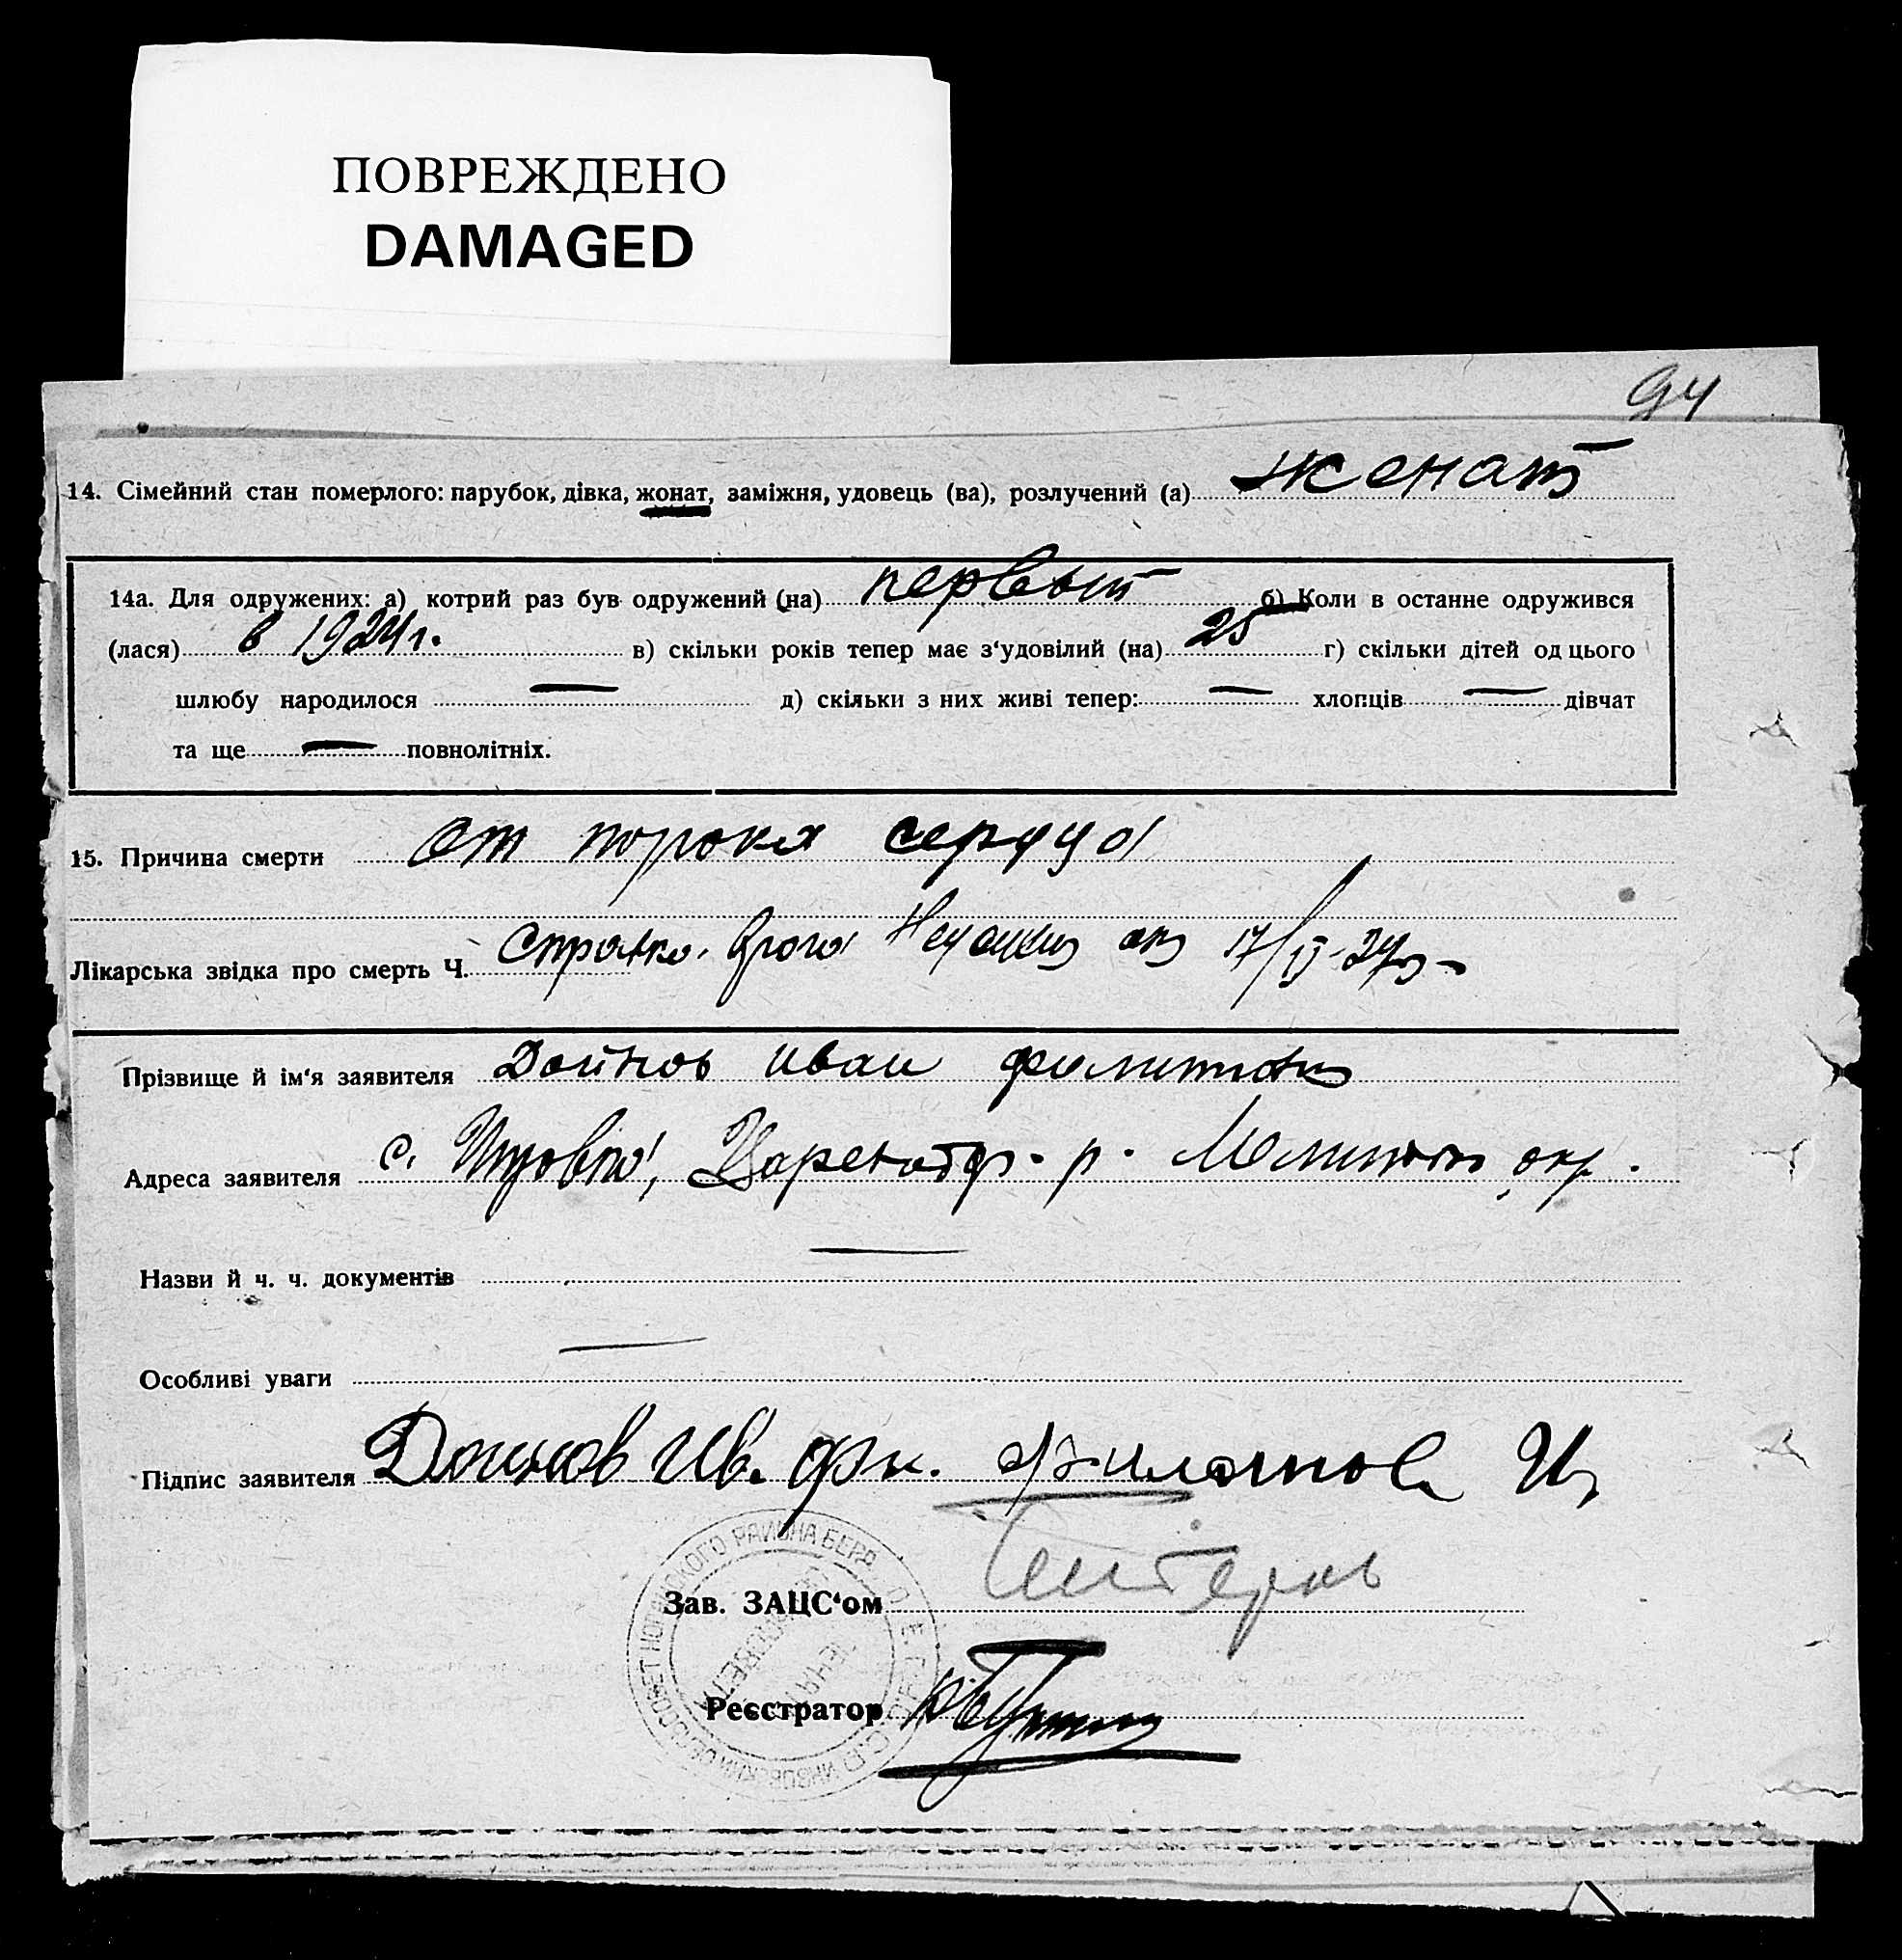 ПОВРЕЖДЕНО
DAMAGED
94
14. Сімейний стан померлого: парубок, дівка, жонат, заміжня, удовець (ва), розлучений (а) женат
14а. Для одружених: а) котрий раз був одружений (на) первый б) Коли в останне одружився
(лася) в 1924 г. в) скільки років тепер має з‘удовілий (на) 25 г) скільки дітей од цього
шлюбу народилося — д) скільки з них живі тепер: — хлопців — дівчат
та ще — повнолітніх.
15. Причина смерти от порока сердца
Лікарська звідка про смерть Ч. Справка врача от 17/
Прізвище й ім‘я заявителя Дойнов Иван
Адреса заявителя с. р. окр.
Назви й ч. ч. документів —
Особливі уваги —
Підпис заявителя Дойнов Ив. И
Зав. ЗАЦС‘ом
Реєстратор